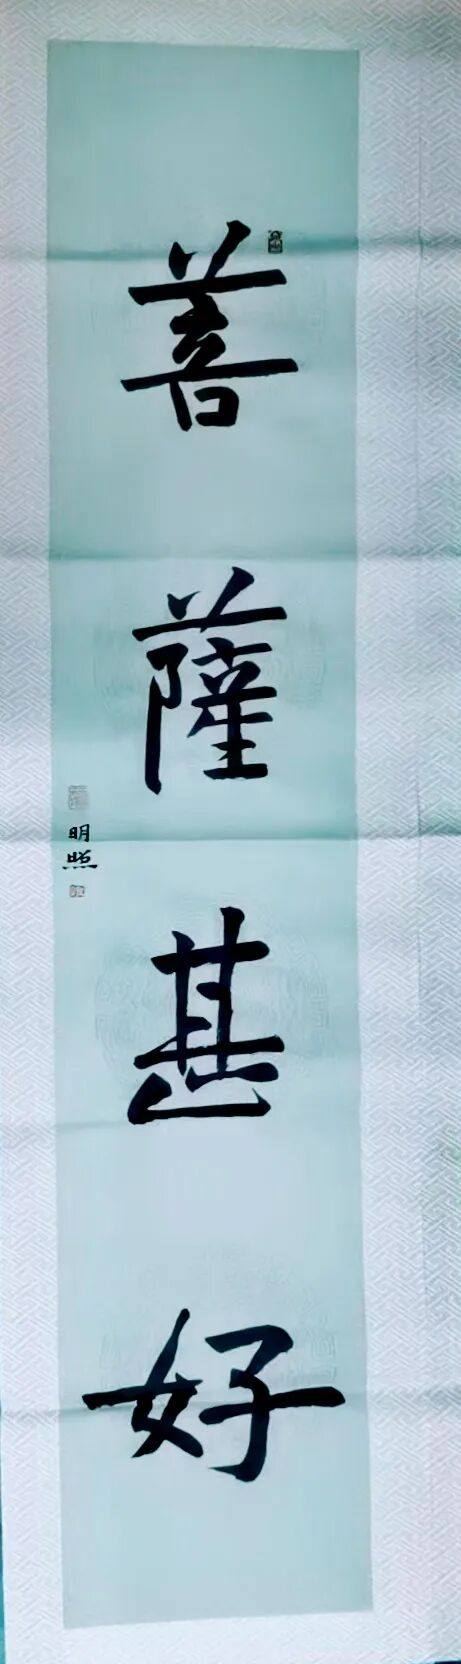 菩薩甚好
明照